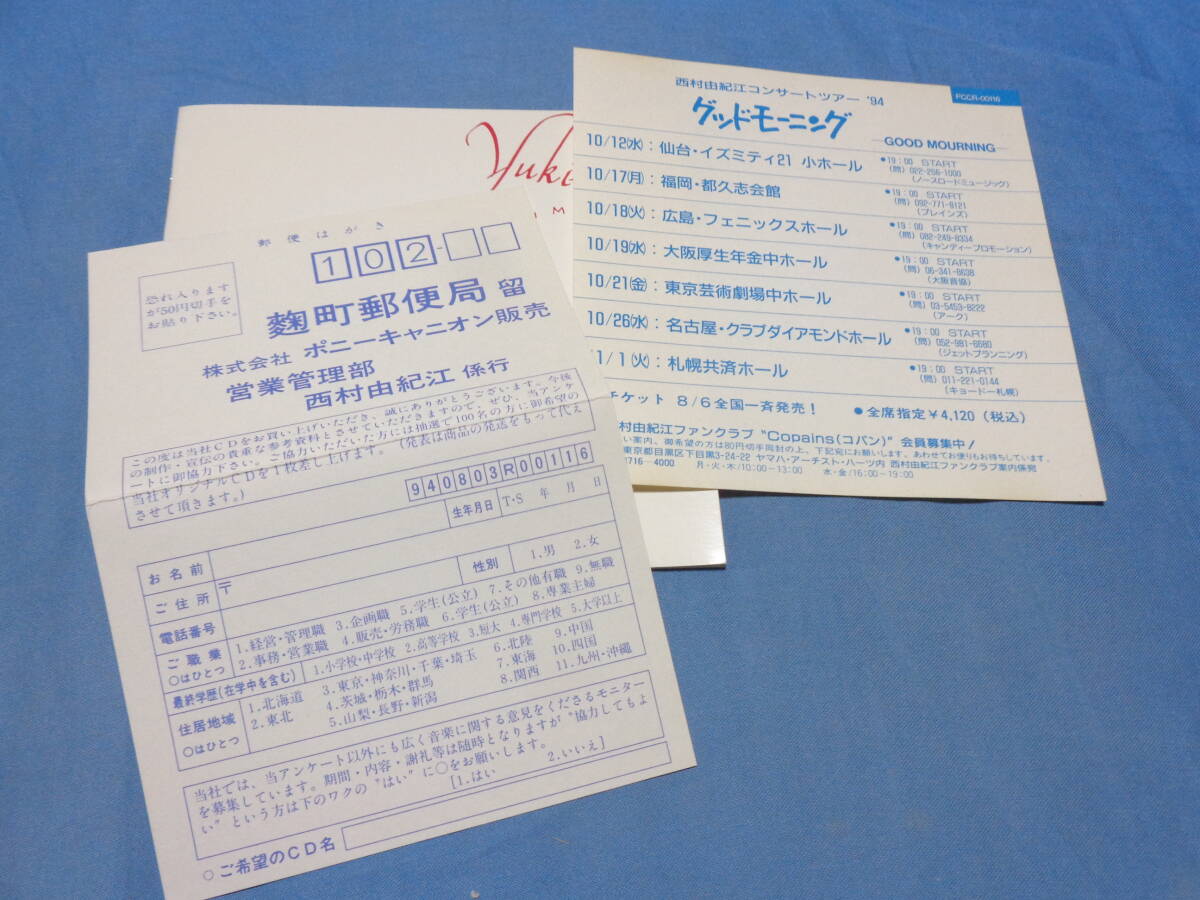 Yuki
西村由紀江コンサートツアー '94
PCCR-00116
グッドモーニング
—GOOD MOURNING—
10/12(水):仙台・イズミティ21 小ホール
●19:00 START
(問) 022-256-1000
(ノースロードミュージック)
10/17(月):福岡・都久志会館
●19:00 START
(問) 092-771-8121
(ブレインズ)
10/18(火):広島・フェニックスホール
●19:00 START
(問) 082-249-8334
(キャンディープロモーション)
10/19(水):大阪厚生年金中ホール
●19:00 START
(問) 06-341-8638
(大阪音協)
10/21(金):東京芸術劇場中ホール
●19:00 START
(問) 03-5453-8222
(アーク)
10/26(水):名古屋・クラブダイアモンドホール
●19:00 START
(問) 052-981-6680
(ジェットプランニング)
1/1(火):札幌共済ホール
●19:00 START
(問) 011-221-0144
(キョードー札幌)
チケット 8/6全国一斉発売!
●全席指定¥4,120(税込)
村由紀江ファンクラブ “Copains(コパン)” 会員募集中!
い案内、御希望の方は80円切手同封の上、下記宛にお願いします。あわせてお便りもお待ちしています。
東京都目黒区下目黒3-24-22 ヤマハ・アーチスト・ハーツ内 西村由紀江ファンクラブ案内係宛
3716-4000 月・火・木/10:00-13:00 水・金/16:00-19:00
郵便はがき
102-
恐れ入ります
が50円切手を
お貼り下さい。
麹町郵便局 留
株式会社 ポニーキャニオン販売
営業管理部
西村由紀江 係行
この度は当社CDをお買い上げいただき、誠にありがとうございます。今後
の制作・宣伝の貴重な参考資料とさせていただきますので、ぜひ、当アンケ
ートに御協力下さい。ご協力いただいた方には抽選で100名の方に御希望の
当社オリジナルCDを1枚差し上げます。(発表は商品の発送をもって代え
させて頂きます。)
940803R00116
生年月日 T・S 年 月 日
お名前
性別 1.男 2.女
ご住所 〒
電話番号
ご職業
○はひとつ
1.経営・管理職 3.企画職 5.学生(公立) 7.その他有職 9.無職
2.事務・営業職 4.販売・労務職 6.学生(公立) 8.専業主婦
最終学歴(在学中を含む) 1.小学校・中学校 2.高等学校 3.短大 4.専門学校 5.大学以上
住居地域
○はひとつ
1.北海道 3.東京・神奈川・千葉・埼玉 6.北陸 9.中国
2.東北 4.茨城・栃木・群馬 7.東海 10.四国
5.山梨・長野・新潟 8.関西 11.九州・沖縄
当社では、当アンケート以外にも広く音楽に関する意見をくださるモニター
を募集しています。期間・内容・謝礼等は随時となりますが“協力してもよ
い”という方は下のワクの“はい”に○をお願いします。
[1.はい 2.いいえ]
○ご希望のCD名